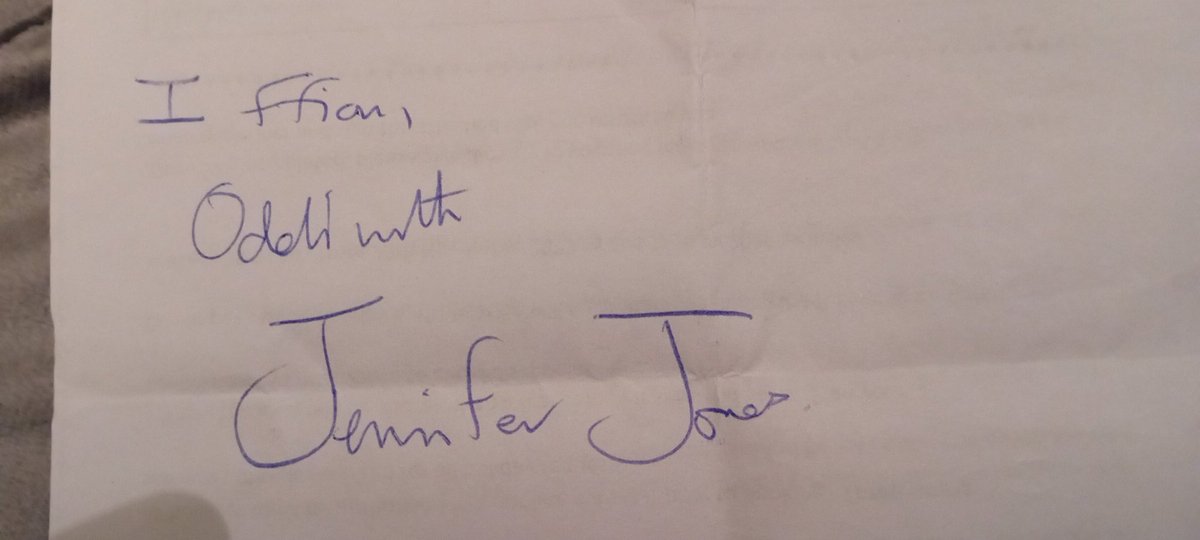 I Ffion,
Oddi wrth
Jennifer Jones